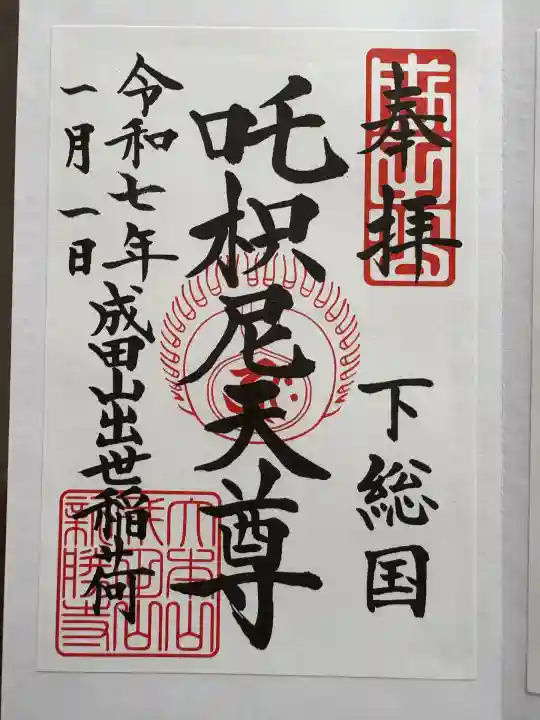 奉拝
下総国
吒枳尼天尊
令和七年
一月一日
成田山出世稲荷
大本山
成田山
新勝寺